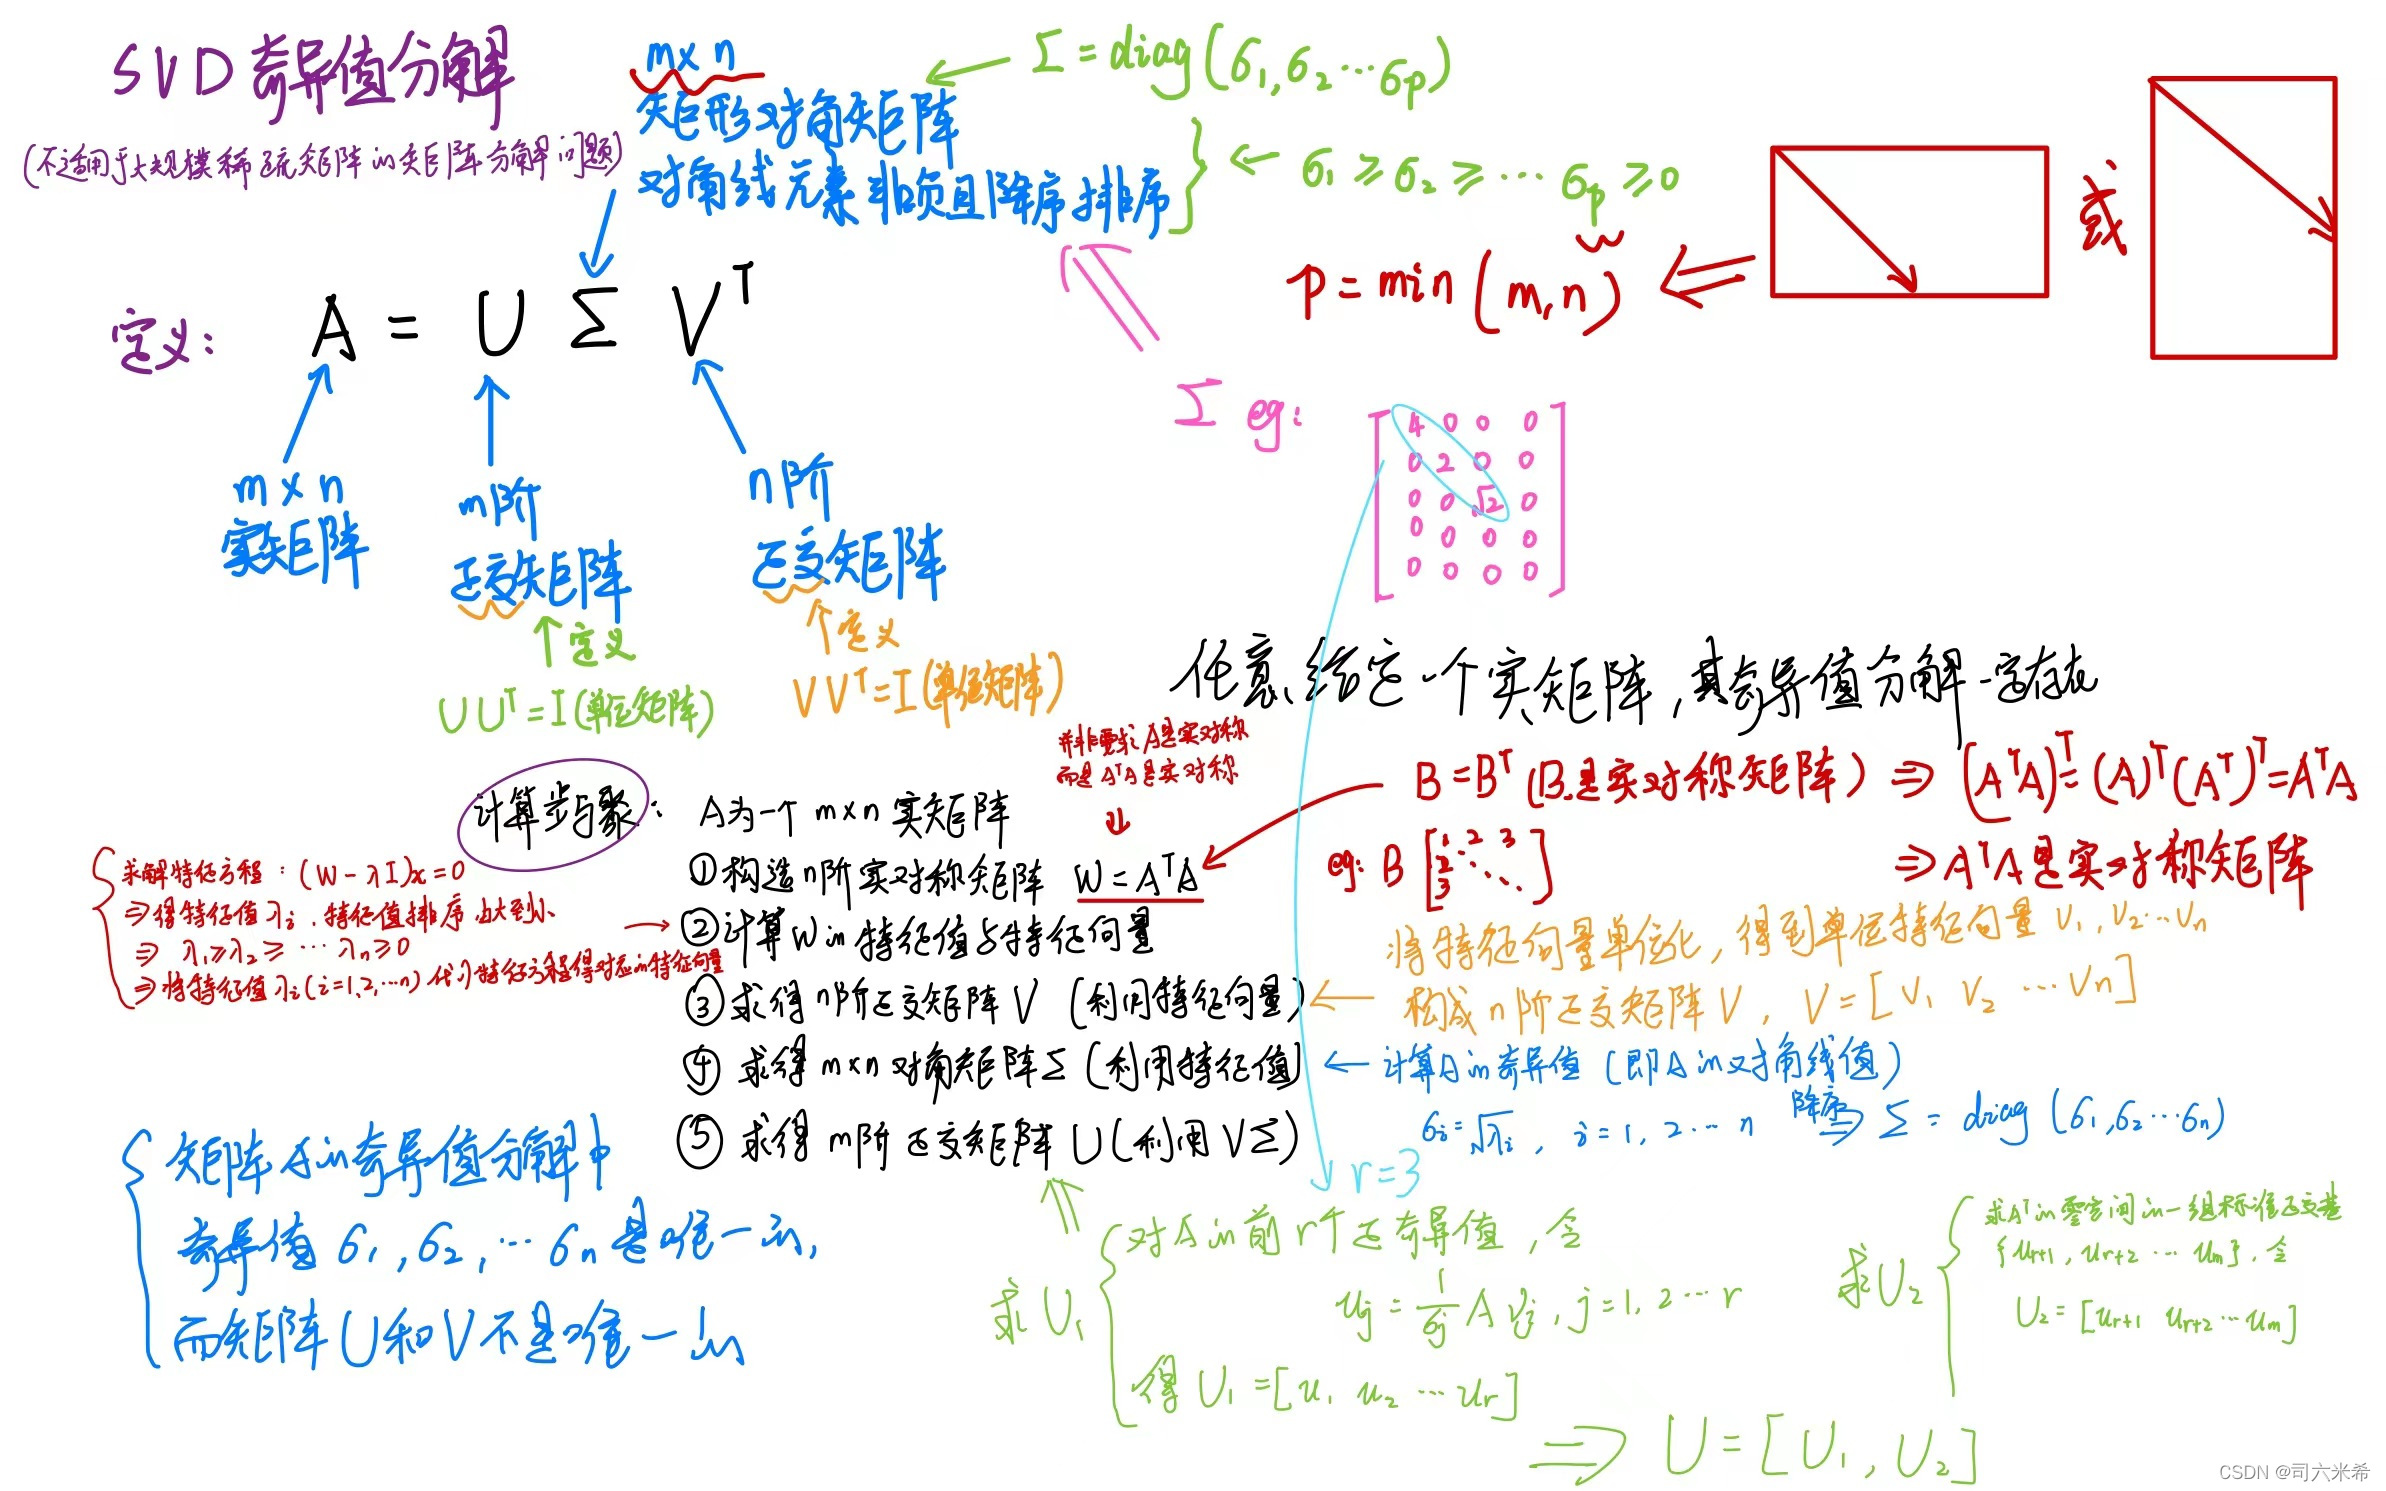 SVD 奇异值分解
(不适用于大规模稀疏矩阵的矩阵分解问题)
m×n
矩形对角矩阵
对角线元素非负且降序排序
Σ = diag(σ₁,σ₂…σp)
σ₁ ≥ σ₂ ≥ … σp ≥ 0
p = min (m,n)
或
定义:
A = U Σ Vᵀ
m × n
实矩阵
m阶
正交矩阵
定义
UUᵀ = I (单位矩阵)
n阶
正交矩阵
定义
VVᵀ = I (单位矩阵)
Σ eg:
4 0 0 0
0 2 0 0
0 0 √2 0
0 0 0 0
0 0 0 0
r=3
任意给定一个实矩阵,其奇异值分解一定存在
并非要求A是实对称
而是AᵀA是实对称
B = Bᵀ (B是实对称矩阵) ⇒ (AᵀA)ᵀ = (A)ᵀ(Aᵀ)ᵀ = AᵀA
eg: B [1 2 3
2 ⋱
3 ⋱]
⇒ AᵀA是实对称矩阵
计算步骤:
A为一个 m×n 实矩阵
①构造n阶实对称矩阵 W = AᵀA
②计算W的特征值与特征向量
③求得n阶正交矩阵 V (利用特征向量)
④ 求得 m×n 对角矩阵Σ (利用特征值)
⑤ 求得 m阶正交矩阵 U (利用 VΣ)
求解特征方程:(W - λI)x = 0
⇒ 得特征值λi,特征值排序由大到小
⇒ λ₁ ≥ λ₂ ≥ … λn ≥ 0
⇒ 将特征值λi (i=1,2,…n) 代入特征方程得对应的特征向量
将特征向量单位化, 得到单位特征向量 V₁, V₂…Vn
构成n阶正交矩阵 V, V = [V₁ V₂ …Vn]
计算A的奇异值 (即A的对角线值)
σi = √λi , i = 1, 2 … n 降序⇒ Σ = diag (σ₁,σ₂…σn)
矩阵A的奇异值分解中
奇异值 σ₁,σ₂,…σn 是唯一的,
而矩阵U和V不是唯一的
求 U₁
对A的前r个正奇异值,令
uj = 1/σj A vj , j = 1, 2 … r
得 U₁ = [u₁ u₂ … ur]
求U₂
求Aᵀ的零空间的一组标准正交基
{ur+1, ur+2 … um}, 令
U₂ = [ur+1 ur+2 … um]
⇒ U = [U₁, U₂]
CSDN @司六米希